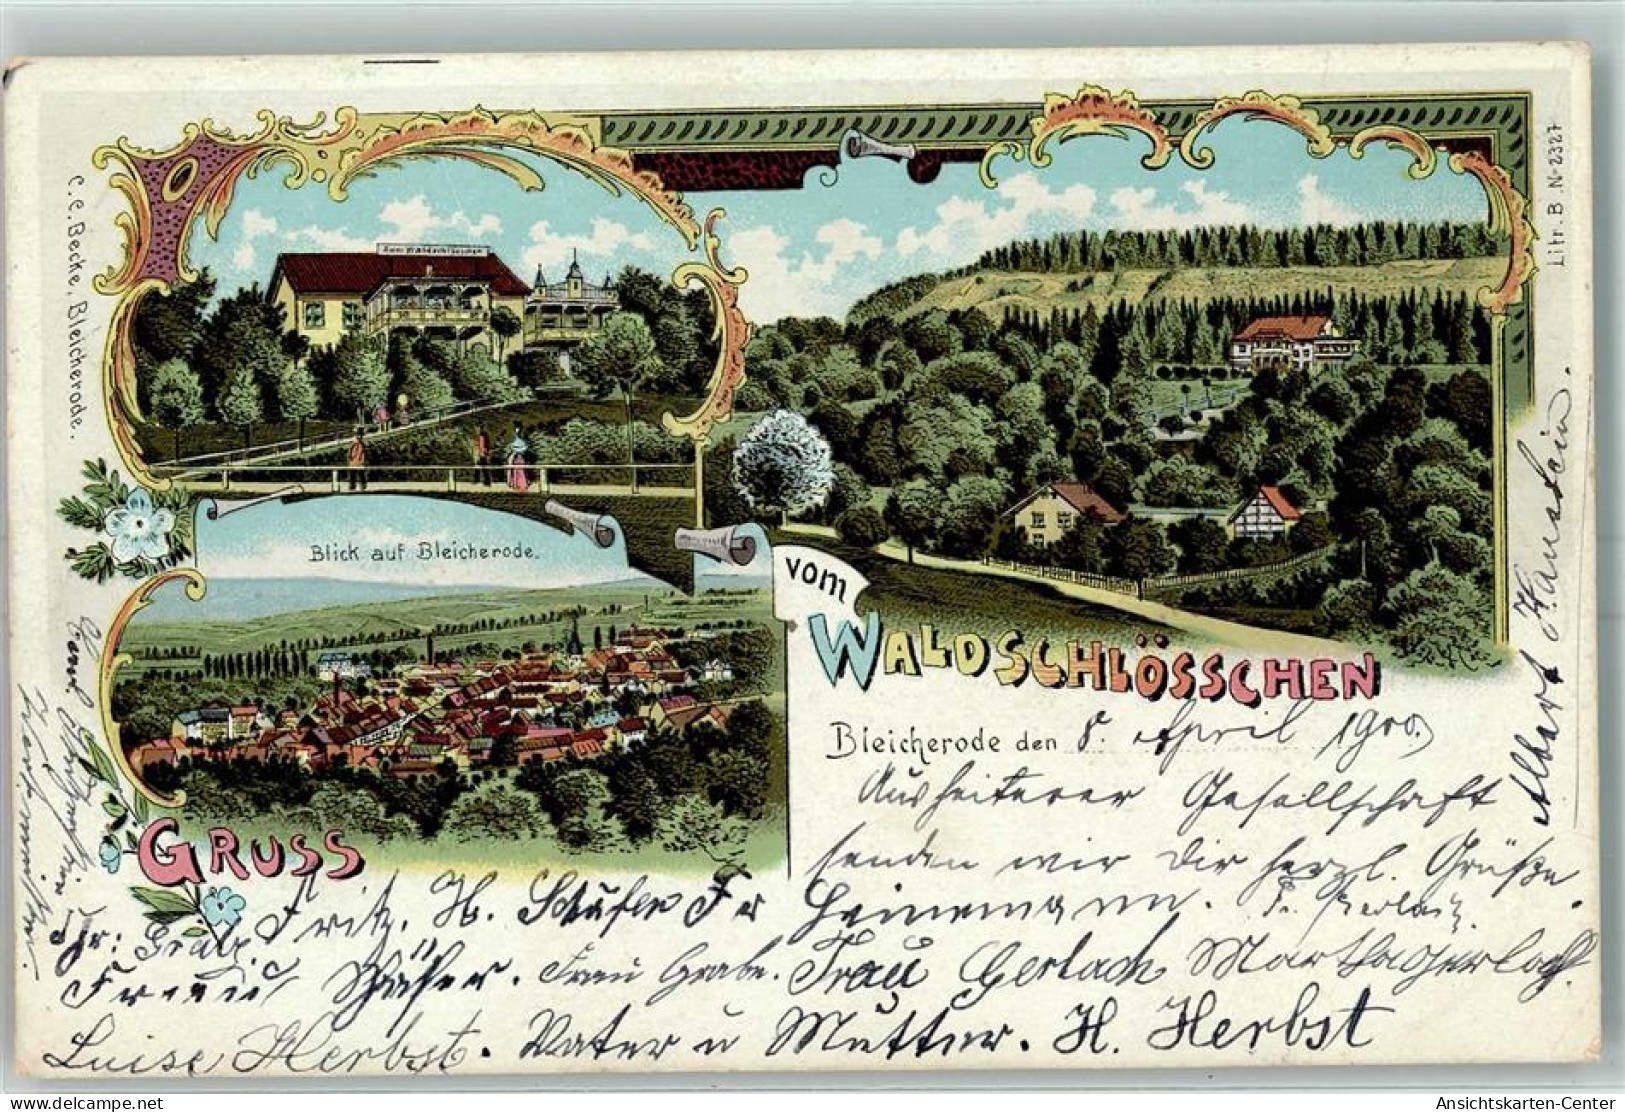 C. C. Becke, Bleicherode.
Litr. B. No 2327
Zum Waldschlösschen
Blick auf Bleicherode.
GRUSS
vom
WALDSCHLÖSSCHEN
Bleicherode den 8. April 1900.
Aus heiterer Gesellschaft
senden wir Dir herzl. Grüße.
Fritz. H. Schäfer Fr Heinemann. Fr.
Frau Schäfer. Frau Grabe. Frau Gerlach Martha Gerlach.
Luise Herbst. Vater u Mutter. H. Herbst
Albert Hanstein.
Ansichtskarten-Center